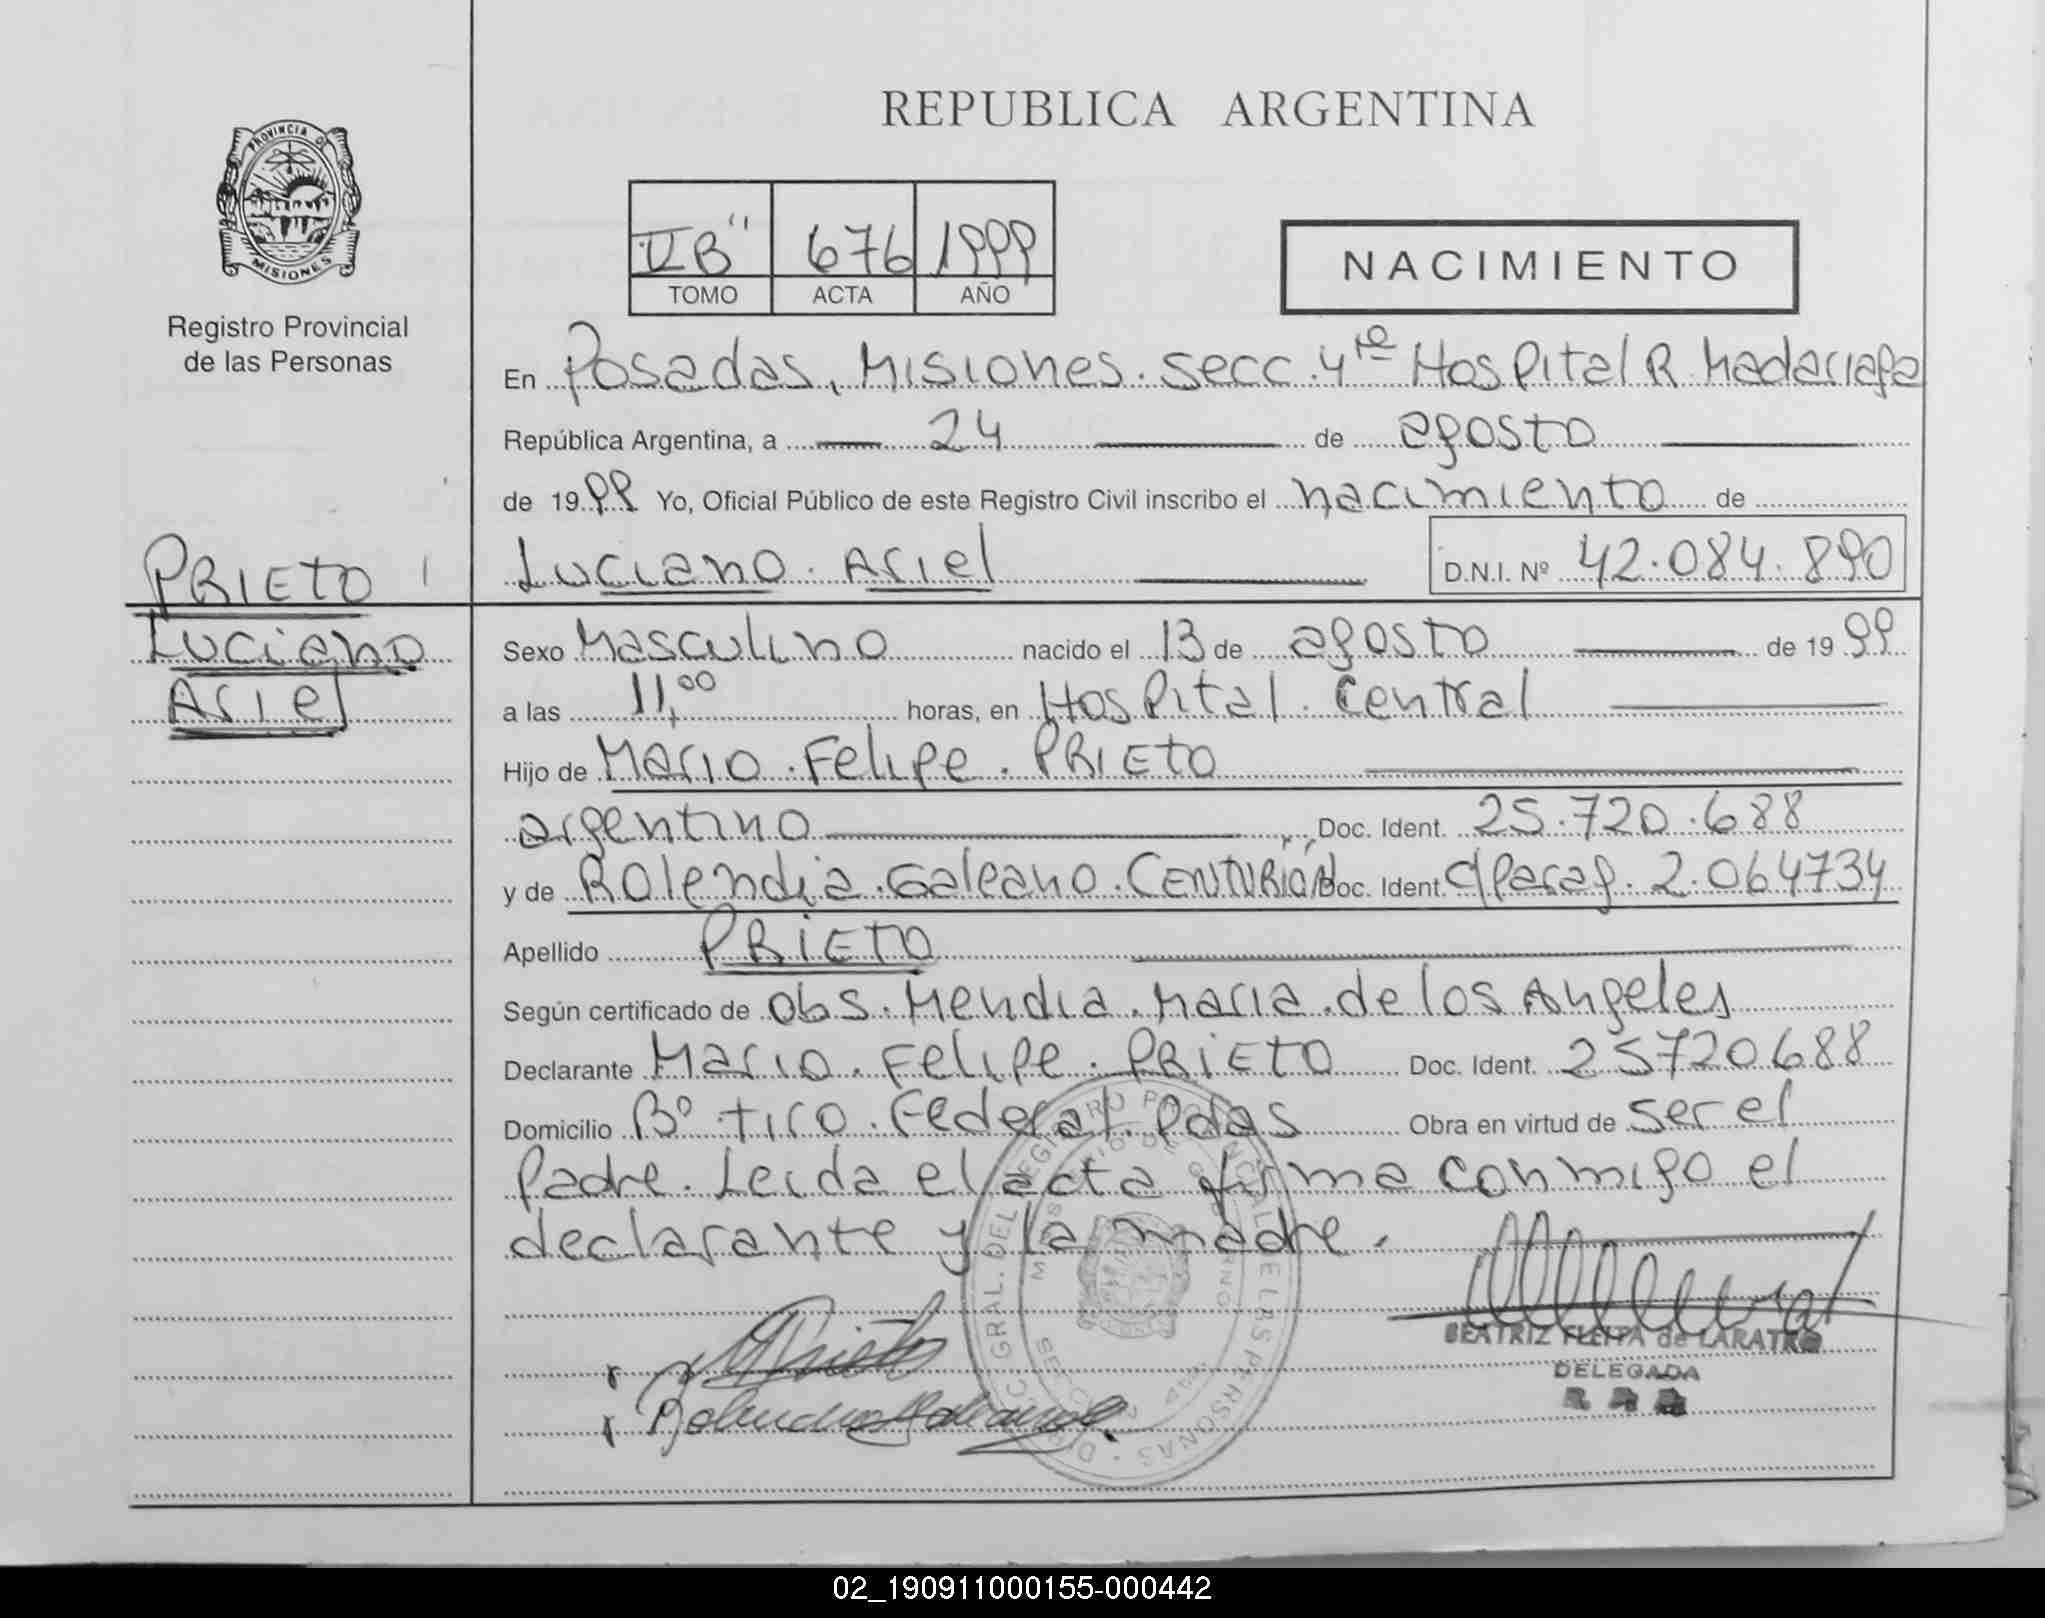 REPUBLICA ARGENTINA
PROVINCIA DE
MISIONES
Registro Provincial
de las Personas
"II B" 676 1999
TOMO ACTA AÑO
NACIMIENTO
En Posadas, Misiones. Secc. 4ta Hospital R. Madariaga
República Argentina, a 24 de agosto
de 1999 Yo, Oficial Público de este Registro Civil inscribo el nacimiento de
Luciano Ariel D.N.I. Nº 42.084.890
PRIETO
Luciano
Ariel
Sexo Masculino nacido el 13 de agosto de 1999
a las 11,00 horas, en Hospital Central
Hijo de Mario Felipe PRIETO
argentino Doc. Ident. 25.720.688
y de Rolendia Galeano CENTURIÓN Doc. Ident. C/Parag. 2.064734
Apellido PRIETO
Según certificado de Obs. Mendia Maria de los Angeles
Declarante Mario Felipe PRIETO Doc. Ident. 25720688
Domicilio Bº Tiro Federal Pdas Obra en virtud de ser el
Padre. Leida el acta firma conmigo el
declarante y la madre.
BEATRIZ FLEITA de LARATRO
DELEGADA
02_190911000155-000442